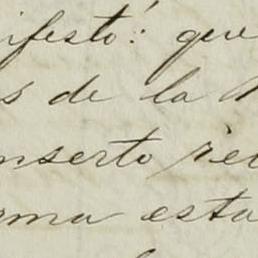 ifesto: que
s de la
nserto rec
rma esta